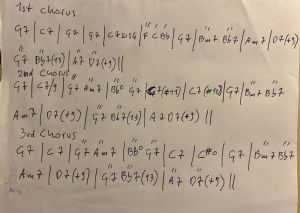 1st chorus
G7 | C7 | G7 | G7 | C7sus4 | F C Bb | G7 | Bm7 Bb7 | Am7 | D7(+9)
G7 Bb7(13) | A7 D7(+9) ||
2nd Chorus
G7 | C7/9 | G7 Am7 | Bb° G7 | C7 (#11) | G7 | Bm7 Bb7
Am7 | D7(+9) | G7 Bb7(13) | A7 D7(+9) ||
3rd Chorus
G7 | C7 | G7 Am7 | Bb° G7 | C7 | C#o | G7 | Bm7 Bb7
Am7 | D7(+9) | G7 Bb7(13) | A7 D7(+9) ||